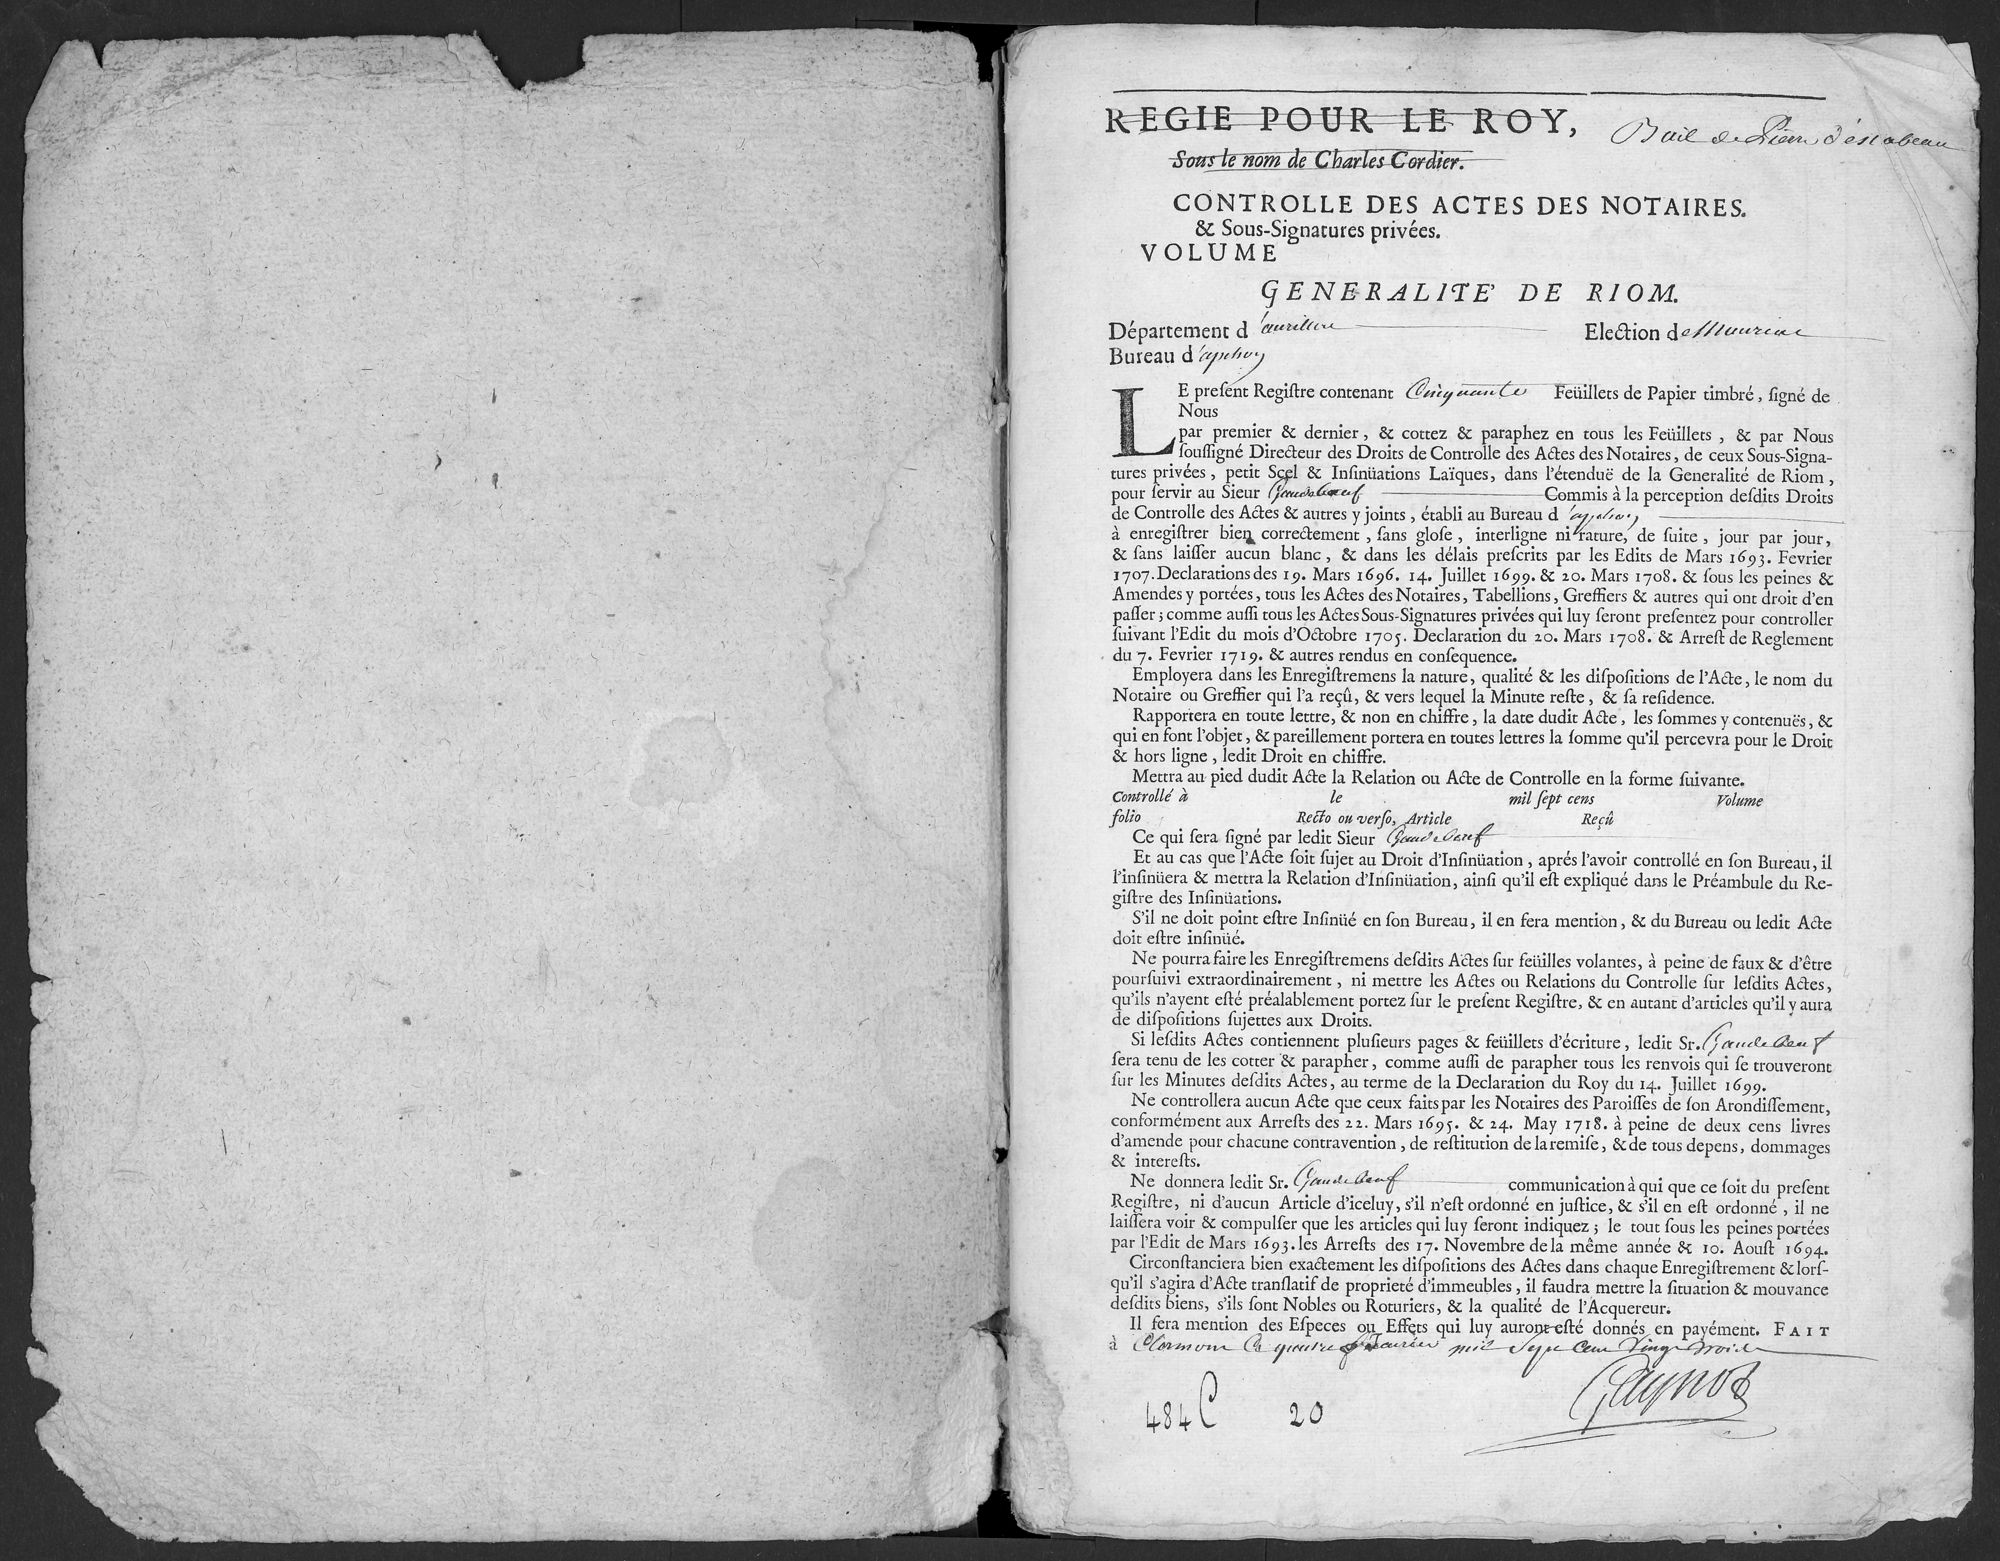 REGIE POUR LE ROY,
Bail de Pierre
Sous le nom de Charles Cordier.
CONTROLLE DES ACTES DES NOTAIRES.
& Sous-Signatures privées.
VOLUME
GENERALITE' DE RIOM.
Département d'aurillac Election de Mauriac
Bureau d'apchon
LE preſent Regiſtre contenant Cinquante Feüillets de Papier timbré, ſigné de
Nous
par premier & dernier, & cottez & paraphez en tous les Feüillets, & par Nous
ſouſſigné Directeur des Droits de Controlle des Actes des Notaires, de ceux Sous-Signa-
tures privées, petit Scel & Inſinüations Laïques, dans l'étenduë de la Generalité de Riom,
pour ſervir au Sieur Gaudebœuf Commis à la perception deſdits Droits
de Controlle des Actes & autres y joints, établi au Bureau d'apchon
à enregiſtrer bien correctement, ſans gloſe, interligne ni rature, de ſuite, jour par jour,
& ſans laiſſer aucun blanc, & dans les délais preſcrits par les Edits de Mars 1693. Fevrier
1707. Declarations des 19. Mars 1696. 14. Juillet 1699. & 20. Mars 1708. & ſous les peines &
Amendes y portées, tous les Actes des Notaires, Tabellions, Greffiers & autres qui ont droit d'en
paſſer; comme auſſi tous les Actes Sous-Signatures privées qui luy ſeront preſentez pour controller
ſuivant l'Edit du mois d'Octobre 1705. Declaration du 20. Mars 1708. & Arreſt de Reglement
du 7. Fevrier 1719. & autres rendus en conſequence.
Employera dans les Enregiſtremens la nature, qualité & les diſpoſitions de l'Acte, le nom du
Notaire ou Greffier qui l'a reçû, & vers lequel la Minute reſte, & ſa reſidence.
Rapportera en toute lettre, & non en chiffre, la date dudit Acte, les ſommes y contenuës, &
qui en font l'objet, & pareillement portera en toutes lettres la ſomme qu'il percevra pour le Droit
& hors ligne, ledit Droit en chiffre.
Mettra au pied dudit Acte la Relation ou Acte de Controlle en la forme ſuivante.
Controllé à le mil ſept cens Volume
folio Recto ou verſo, Article Reçû
Ce qui ſera ſigné par ledit Sieur Gaudebœuf
Et au cas que l'Acte ſoit ſujet au Droit d'Inſinüation, aprés l'avoir controllé en ſon Bureau, il
l'inſinüera & mettra la Relation d'Inſinüation, ainſi qu'il eſt expliqué dans le Préambule du Re-
giſtre des Inſinüations.
S'il ne doit point eſtre Inſinüé en ſon Bureau, il en fera mention, & du Bureau ou ledit Acte
doit eſtre inſinüé.
Ne pourra faire les Enregiſtremens deſdits Actes ſur feüilles volantes, à peine de faux & d'être
pourſuivi extraordinairement, ni mettre les Actes ou Relations du Controlle ſur leſdits Actes,
qu'ils n'ayent eſté préalablement portez ſur le preſent Regiſtre, & en autant d'articles qu'il y aura
de diſpoſitions ſujettes aux Droits.
Si leſdits Actes contiennent pluſieurs pages & feüillets d'écriture, ledit Sr. Gaudebœuf
ſera tenu de les cotter & parapher, comme auſſi de parapher tous les renvois qui ſe trouveront
ſur les Minutes deſdits Actes, au terme de la Declaration du Roy du 14. Juillet 1699.
Ne controllera aucun Acte que ceux faits par les Notaires des Paroiſſes de ſon Arondiſſement,
conformément aux Arreſts des 22. Mars 1695. & 24. May 1718. à peine de deux cens livres
d'amende pour chacune contravention, de reſtitution de la remiſe, & de tous depens, dommages
& intereſts.
Ne donnera ledit Sr. Gaudebœuf communication à qui que ce ſoit du preſent
Regiſtre, ni d'aucun Article d'iceluy, s'il n'eſt ordonné en juſtice, & s'il en eſt ordonné, il ne
laiſſera voir & compulſer que les articles qui luy ſeront indiquez; le tout ſous les peines portées
par l'Edit de Mars 1693. les Arreſts des 17. Novembre de la même année & 10. Aouſt 1694.
Circonſtanciera bien exactement les diſpoſitions des Actes dans chaque Enregiſtrement & lorſ-
qu'il s'agira d'Acte tranſlatif de proprieté d'immeubles, il faudra mettre la ſituation & mouvance
deſdits biens, s'ils ſont Nobles ou Roturiers, & la qualité de l'Acquereur.
Il fera mention des Eſpeces ou Effets qui luy auront eſté donnés en payément. FAIT
à Clermont Ce quatre mil Sept Cent Vingt trois
484 C 20